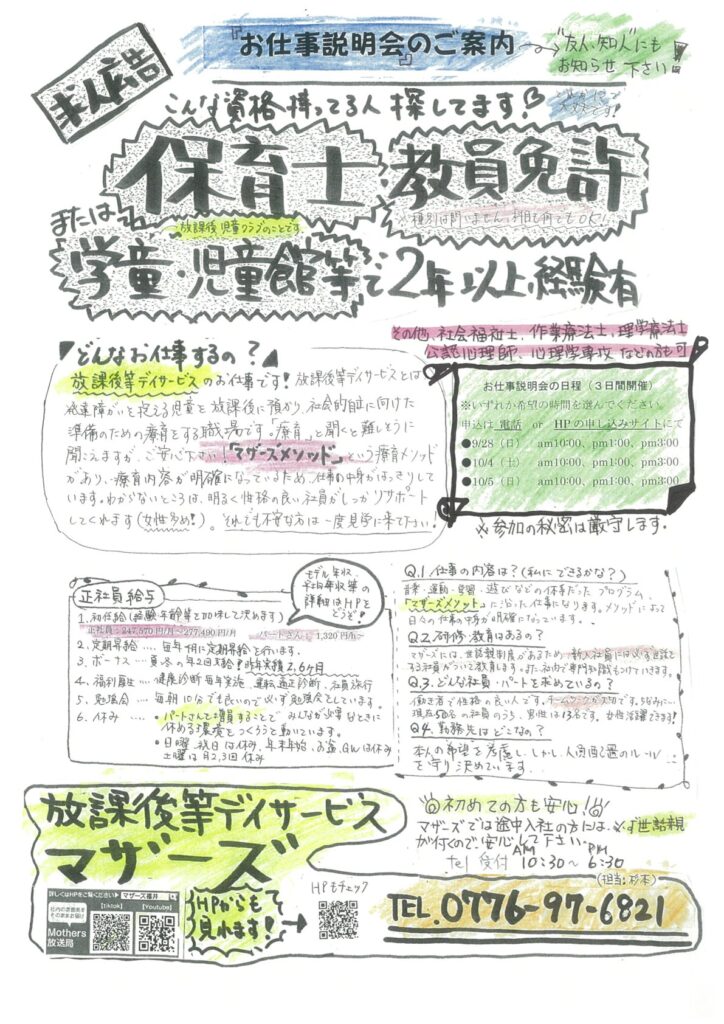 『お仕事説明会のご案内』
"友人、知人"にも
お知らせ下さい!
求人広告
こんな資格持ってる人探してます!
保育士・教員免許
種別は問いません。科目も何でもOK!
または
放課後児童クラブのことです
学童・児童館等で2年以上経験有
その他、社会福祉士、作業療法士、理学療法士
公認心理師、心理学専攻などの方も可
どんなお仕事するの?
放課後等デイサービスのお仕事です!放課後等デイサービスとは
発達障がいを抱える児童を放課後に預かり、社会的自立に向けた
準備のための療育をする職場です。「療育」と聞くと難しそうに
聞こえますが、ご安心下さい!「マザーズメソッド」という療育メソッド
があり、療育内容が明確になっているため、仕事の中身がはっきりして
います。わからないところは、明るく性格の良い社員がしっかりサポート
してくれます(女性多め!)。それでも不安な方は一度見学に来て下さい!
お仕事説明会の日程(3日間開催)
※いずれか希望の時間を選んでください。
申込は 電話 or HPの申し込みサイトにて
●9/28(日) am10:00、pm1:00、pm3:00
●10/4(土) am10:00、pm1:00、pm3:00
●10/5(日) am10:00、pm1:00、pm3:00
※参加の秘密は厳守します。
正社員給与
モデル年収、
平均年収等の
詳細はHPを
どうぞ!
1.初任給(経験・年齢等を加味して決めます)
正社員:247,570円/月~277,490円/月 パートさん:1,320円/h~
2.定期昇給……毎年1月に定期昇給を行います。
3.ボーナス……夏・冬の年2回支給!昨年実績2.6ヶ月
4.福利厚生……健康診断毎年実施、運転適正診断、社員旅行
5.勉強会……毎朝10分でも良いので必ず勉強会をしています。
6.休み……・パートさんを増員することで みんなが必要なときに
休める環境をつくろうと動いています。
・日曜、祝日は休み、年末年始、お盆、GWは休み
土曜は月2,3回休み
Q.1 仕事の内容は?(私にできるかな?)
音楽・運動・学習・遊びなどの
プログラム、
「マザーズメソッド」に沿った仕事になります。メソッドによって
日々の仕事の中身が明確になっています…
Q2.研修・教育はあるの?
マザーズには、世話親制度があるため、新入社員には必ず世話をする
社員がついて教育します。また、社内で専門知識もつけていきます。
Q.3.どんな社員・パートを求めているの?
働き者で性格の良い人です。チームワークが大切です。ちなみに…
現在50名の社員のうち、男性は13名です。女性活躍できる!
Q4.勤務先はどこなの?
本人の希望を考慮し、しかし、人員配置のルール
を守り決めています…
放課後等デイサービス
マザーズ
初めての方も安心!
マザーズでは途中入社の方には、必ず世話親
が付くので安心して下さい。
AM PM
tel 受付 10:30~6:30
(担当:杉本)
TEL.0776-97-6821
詳しくはHPをご覧ください▶マザーズ福井
社内の雰囲気を
そのままお届け
Mothers
放送局
【tiktok】
【Youtube】
HPからも
見れます!
HPもチェック